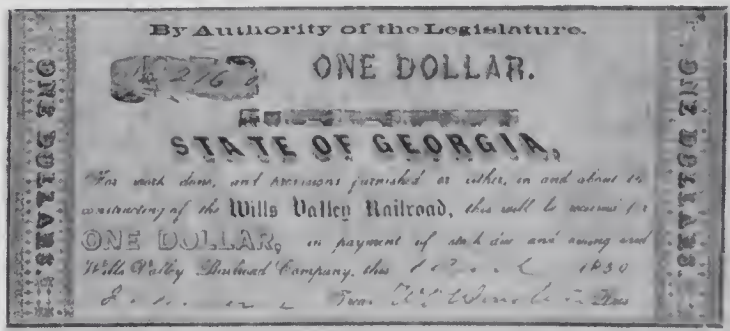 By Authority of the Legislature.
ONE DOLLAR.
STATE OF GEORGIA,
For work done, and provisions furnished or either, in and about the
constructing of the Wills Valley Railroad, this will be received for
ONE DOLLAR, in payment of stock due and owing said
Wills Valley Railroad Company, this
Treas
ONE DOLLAR
ONE DOLLAR